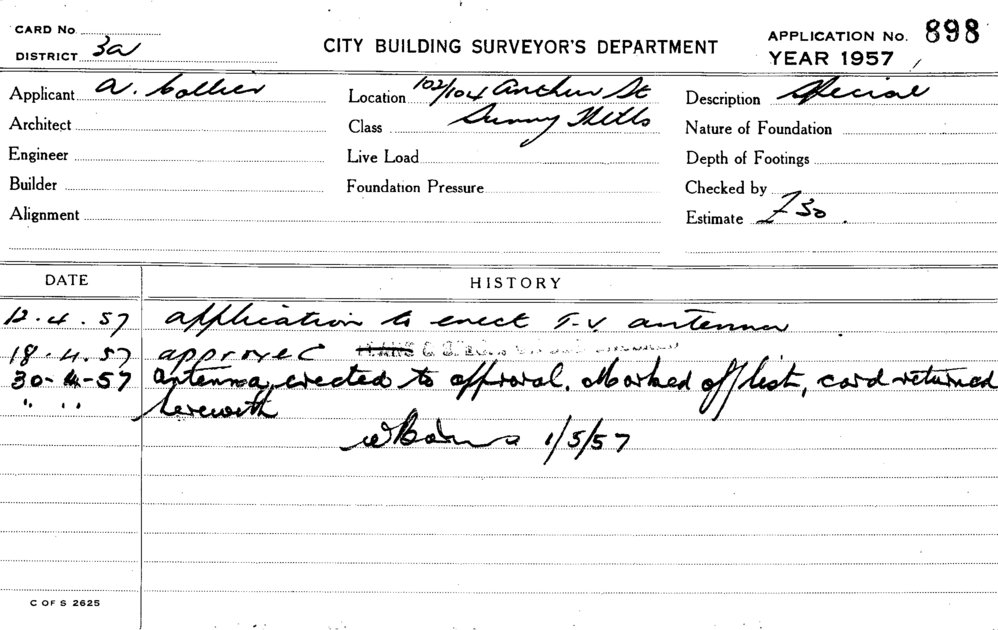 CARD No
DISTRICT 3a
CITY BUILDING SURVEYOR'S DEPARTMENT
APPLICATION No. 898
YEAR 1957
Applicant a. Collier
Location 102/104 Arthur St
Description Special
Architect
Class Surry Hills
Nature of Foundation
Engineer
Live Load
Depth of Footings
Builder
Foundation Pressure
Checked by
Alignment
Estimate £30.
DATE HISTORY
12.4.57 application to erect T.V antenna
18.4.57 approved PLANS &
30-4-57 Antenna erected to approval. Marked off list, card returned
" " herewith
1/5/57
C OF S 2625